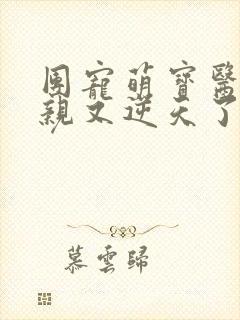 團寵萌寶醫
親又逆天了
慕雲歸